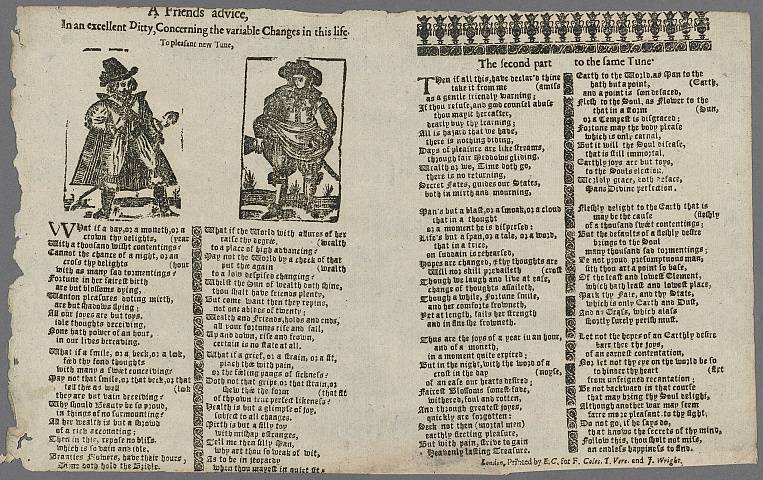 A Friends advice,
In an excellent Ditty, Concerning the variable Changes in this life.
To pleasant new Tune,
WHat if a day, or a moneth, or a
crown thy delights, (year
With a thousand wisht contentings?
Cannot the chance of a night, or an
cross thy delights (hour
with as many sad tormentings?
Fortune in her fairest birth
are but blossoms dying,
Wanton pleasures doting mirth,
are but shadows flying;
All our joyes are but toys,
idle thoughts deceiving,
None hath power of an hour,
in our lives bereaving.
What if a smile, or a beck, or a look,
feed thy fond thoughts
with many a sweet conceiving?
May not that smile, or that beck, or that
tell thee as well (look
they are but vain deceiving?
Why should Beauty be so proud,
in things of no surmounting?
All her wealth is but a shrowd
of a rich accounting;
Then in this repose no bliss,
which is so vain and idle,
Beauties Flowers, have their hours,
Time doth hold the Bridle.
What if the World with allures of her
raise thy degree, (wealth
to a place of high advancing?
May not the World by a check of that
put thee again (wealth
to a low despised changing?
Whilst the sun of wealth doth shine,
thou shalt have friends plenty,
But come want then they repine,
not one abides of twenty;
Wealth and Friends, holds and ends,
as your fortunes rise and fall,
Up and down, rise and frown,
certain is no state at all.
What if a grief, or a strain, or a fit,
pinch thee with pain,
or the feeling pangs of sickness?
Doth not that gripe or that strain, or
shew thee the form (that fit
of thy own true perfect likeness?
Health is but a glimpse of joy,
subject to all changes.
Mirth is but a silly toy
with mishap estranges,
Tell me then silly Man,
why art thou so weak of wit,
As to be in jeopardy
when thou mayest in quiet sit.
The second part to the same Tune.
THen if all this, have declar'd thine
take it from me (amiss
as a gentle friendly warning;
If thou refuse, and good counsel abuse
thou mayst hereafter,
dearly buy thy learning;
All is hazard that we have,
there is nothing biding,
Days of pleasure are like streams,
through fair Meddows gliding.
Wealth or wo, Time doth go,
there is no returning,
Secret Fates, guides our States,
both in mirth and mourning.
Man's but a blast, or a smoak, or a cloud
that in a thought
or a moment he is dispersed:
Life's but a span, or a tale, or a word,
that in a trice,
on suddain is rehearsed,
Hopes are changed, & thy thoughts are
Will nor skill prevaileth (crost
Though we laugh and live at ease,
change of thoughts assaileth,
Though a while, Fortune smile,
and her comforts frowneth,
Yet at length, fails her strength
and in fine she frowneth.
Thus are the joys of a year in an hour,
and of a moneth,
in a moment quite expired;
But in the night, with the word of a
crost in the day (noyse,
of an ease our hearts desired;
Fairest Blossoms soonest fade,
withered, foul and rotten,
And through greatest joyes,
quickly are forgotten;
Seek not then (mortal men)
earthly fleeting pleasure,
But with pain, strive to gain
Heavenly lasting Treasure.
Earth to the World, as Man to the
hath but a point, (Earth,
and a point is soon defaced,
Flesh to the Soul, as Flower to the
that in a storm (Sun,
or a Tempest is disgraced;
Fortune may the body please
which is only carnal,
But it will the Soul disease,
that is still immortal.
Earthly joyes are but toys,
to the Souls election,
Worldly grace, doth deface,
Mans Divine perfection.
Fleshly delight to the Earth that is
may be the cause (fleshly
of a thousand sweet contentings;
But the defaults of a fleshly desire
brings to the Soul
Many thousand sad tormentings;
Be not proud presumptuous man,
sith thou art a point so base,
Of the least and lowest Element,
which hath least and lowest place,
Mark thy Fate, and thy State,
which is only Earth and Dust,
And as Grass, which alass
shortly surely perish must.
Let not the hopes of an Earthly desire
barr thee the joys,
of an earnest contentation,
Nor let not thy eye on the world be so
to hinder thy heart (fixt
from unfeigned recantation;
Be not backward in that course
that may bring thy Soul delight,
Although another way may seem
farre more pleasant to thy sight,
Do not go, if he says so,
that knows the secrets of thy mind,
Follow this, thou shalt not miss,
an endless happiness to find.
London, Printed by E.C. for F. Coles, T. Vere, and J. Wright.